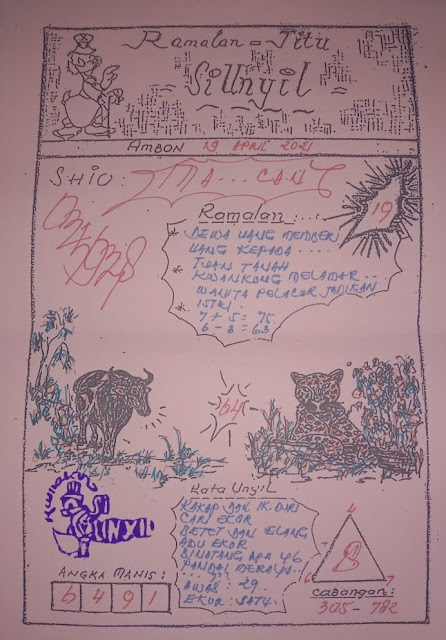 Ramalan = Jitu
Si Unyil
AMBON 19 APRIL 2021
SHIO : MA... CAN
19
Ramalan : ...
* DEWA UANG MEMBERI
UANG KEPADA ....
* TUAN TANAH
KWANKONG MELAMAR ..
WANITA PELACUR JADIKAN
ISTRI.
7 + 5 = 75
6 - 3 = 63
64
Kata Unyil
KAKAP DAN IK. DURI
CARI EKOR
BETET DAN ELANG
ADU EKOR
BINATANG APA YG
PANDAI MERAYU..
... ??
AWAS : 29
EKOR : SATU.
SI
UNYIL
ANGKA MANIS :
6 4 9 1
4
8
6 7
Cabangan :
305 - 782